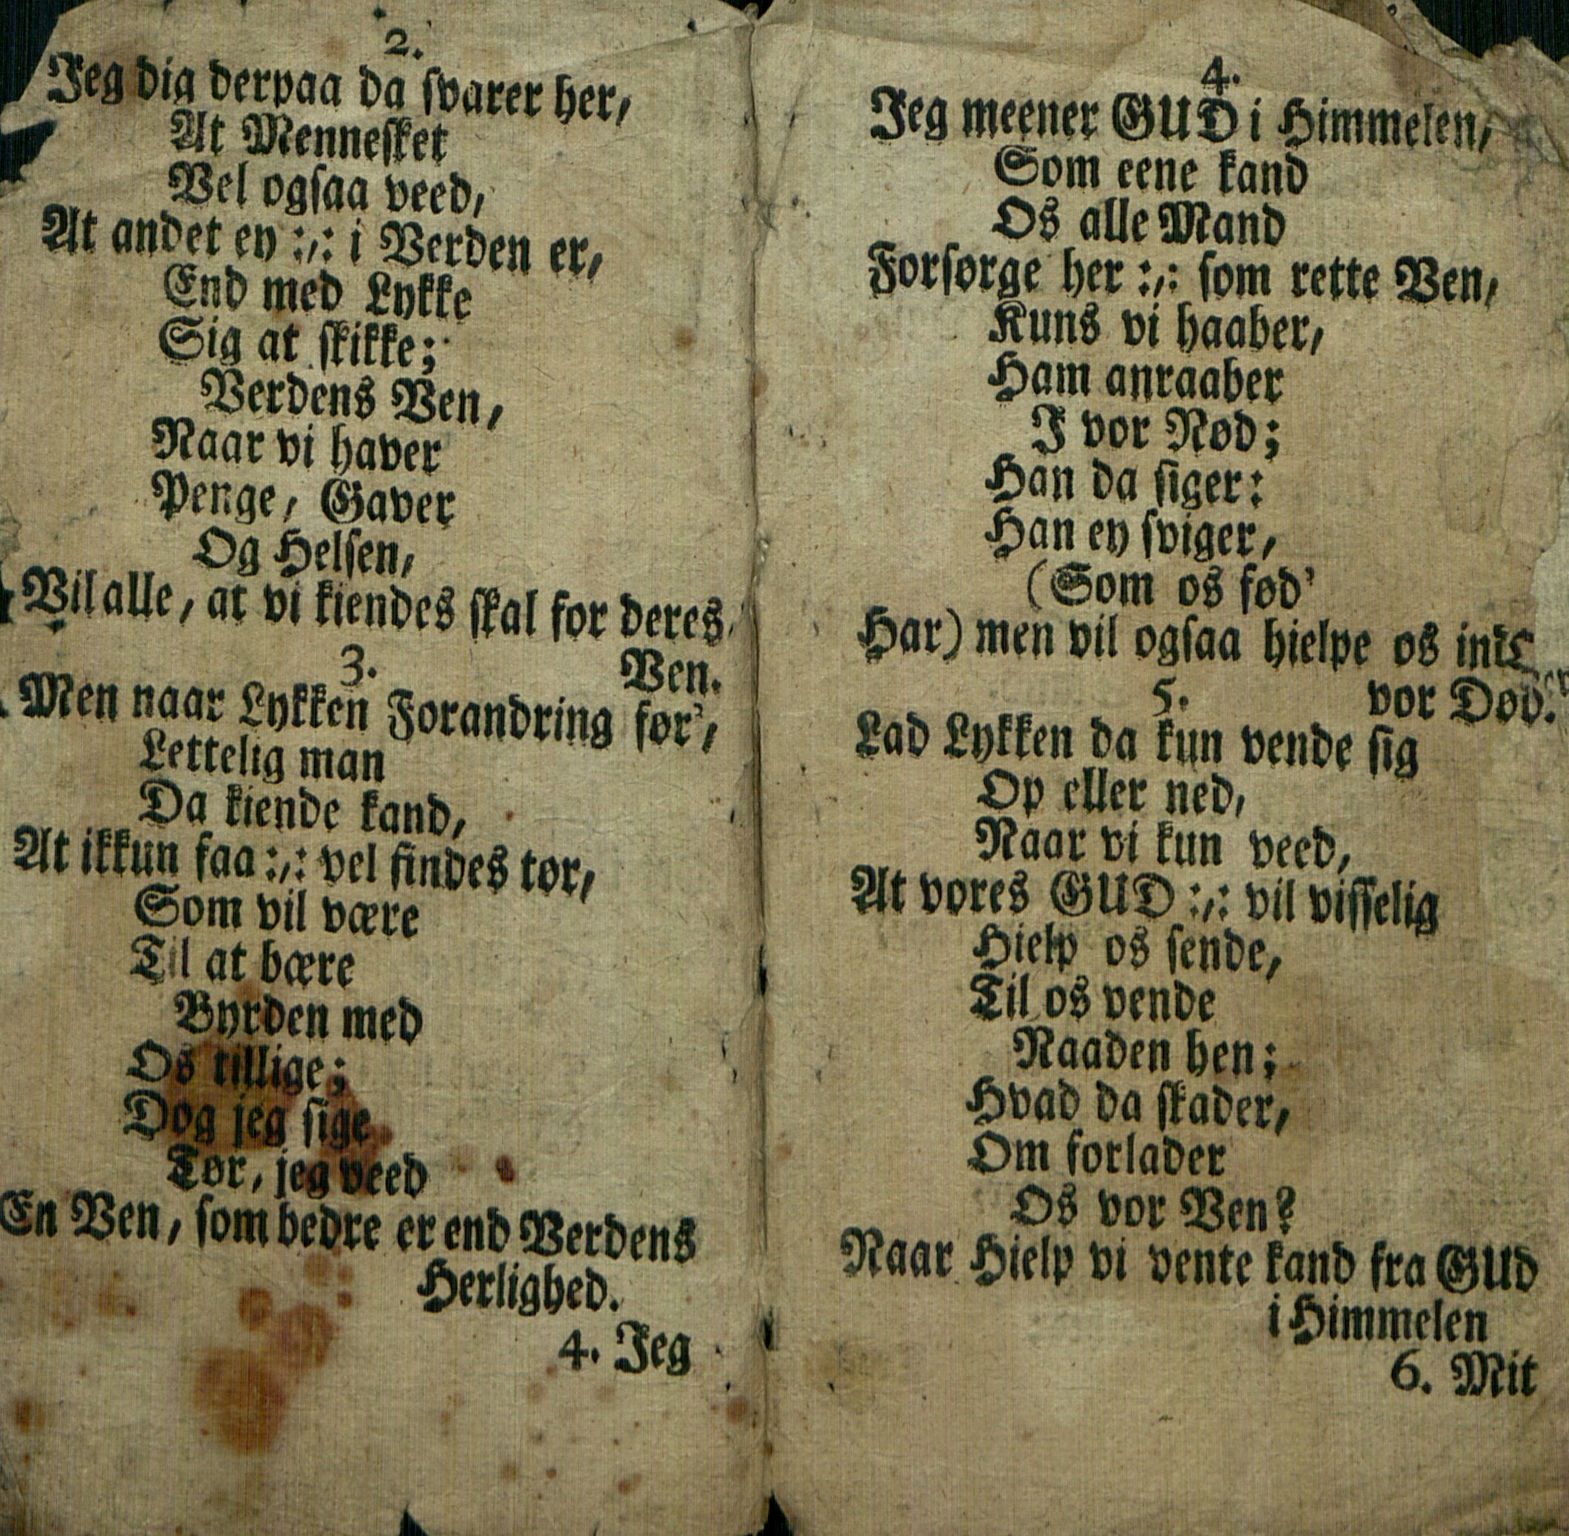 2.
Jeg dig derpaa da svarer her,
At Mennesket
Vel ogsaa veed,
At andet ey :,: i Verden er,
End med Lykke
Sig at skikke;
Verdens Ven,
Naar vi haver
Penge, Gaver
Og Helsen,
Vil alle, at vi kiendes skal for deres
Ven.
3.
Men naar Lykken Forandring før',
Lettelig man
Da kiende kand,
At ikkun faa :,: vel findes tør,
Som vil være
Til at bære
Byrden med
Os tillige;
Dog jeg sige
Tør, jeg veed
En Ven, som bedre er end Verdens
Herlighed.
4. Jeg
4.
Jeg meener GUD i Himmelen,
Som eene kand
Os alle Mand
Forsørge her :,: som rette Ven,
Kuns vi haaber,
Ham anraaber
I vor Nød;
Han da siger:
Han ey sviger,
(Som os fød'
Har) men vil ogsaa hielpe os indt
vor Død.
5.
Lad Lykken da kun vende sig
Op eller ned,
Naar vi kun veed,
At vores GUD :,: vil visselig
Hielp os sende,
Til os vende
Naaden hen;
Hvad da skader,
Om forlader
Os vor Ven?
Naar Hielp vi vente kand fra GUD
i Himmelen
6. Mit